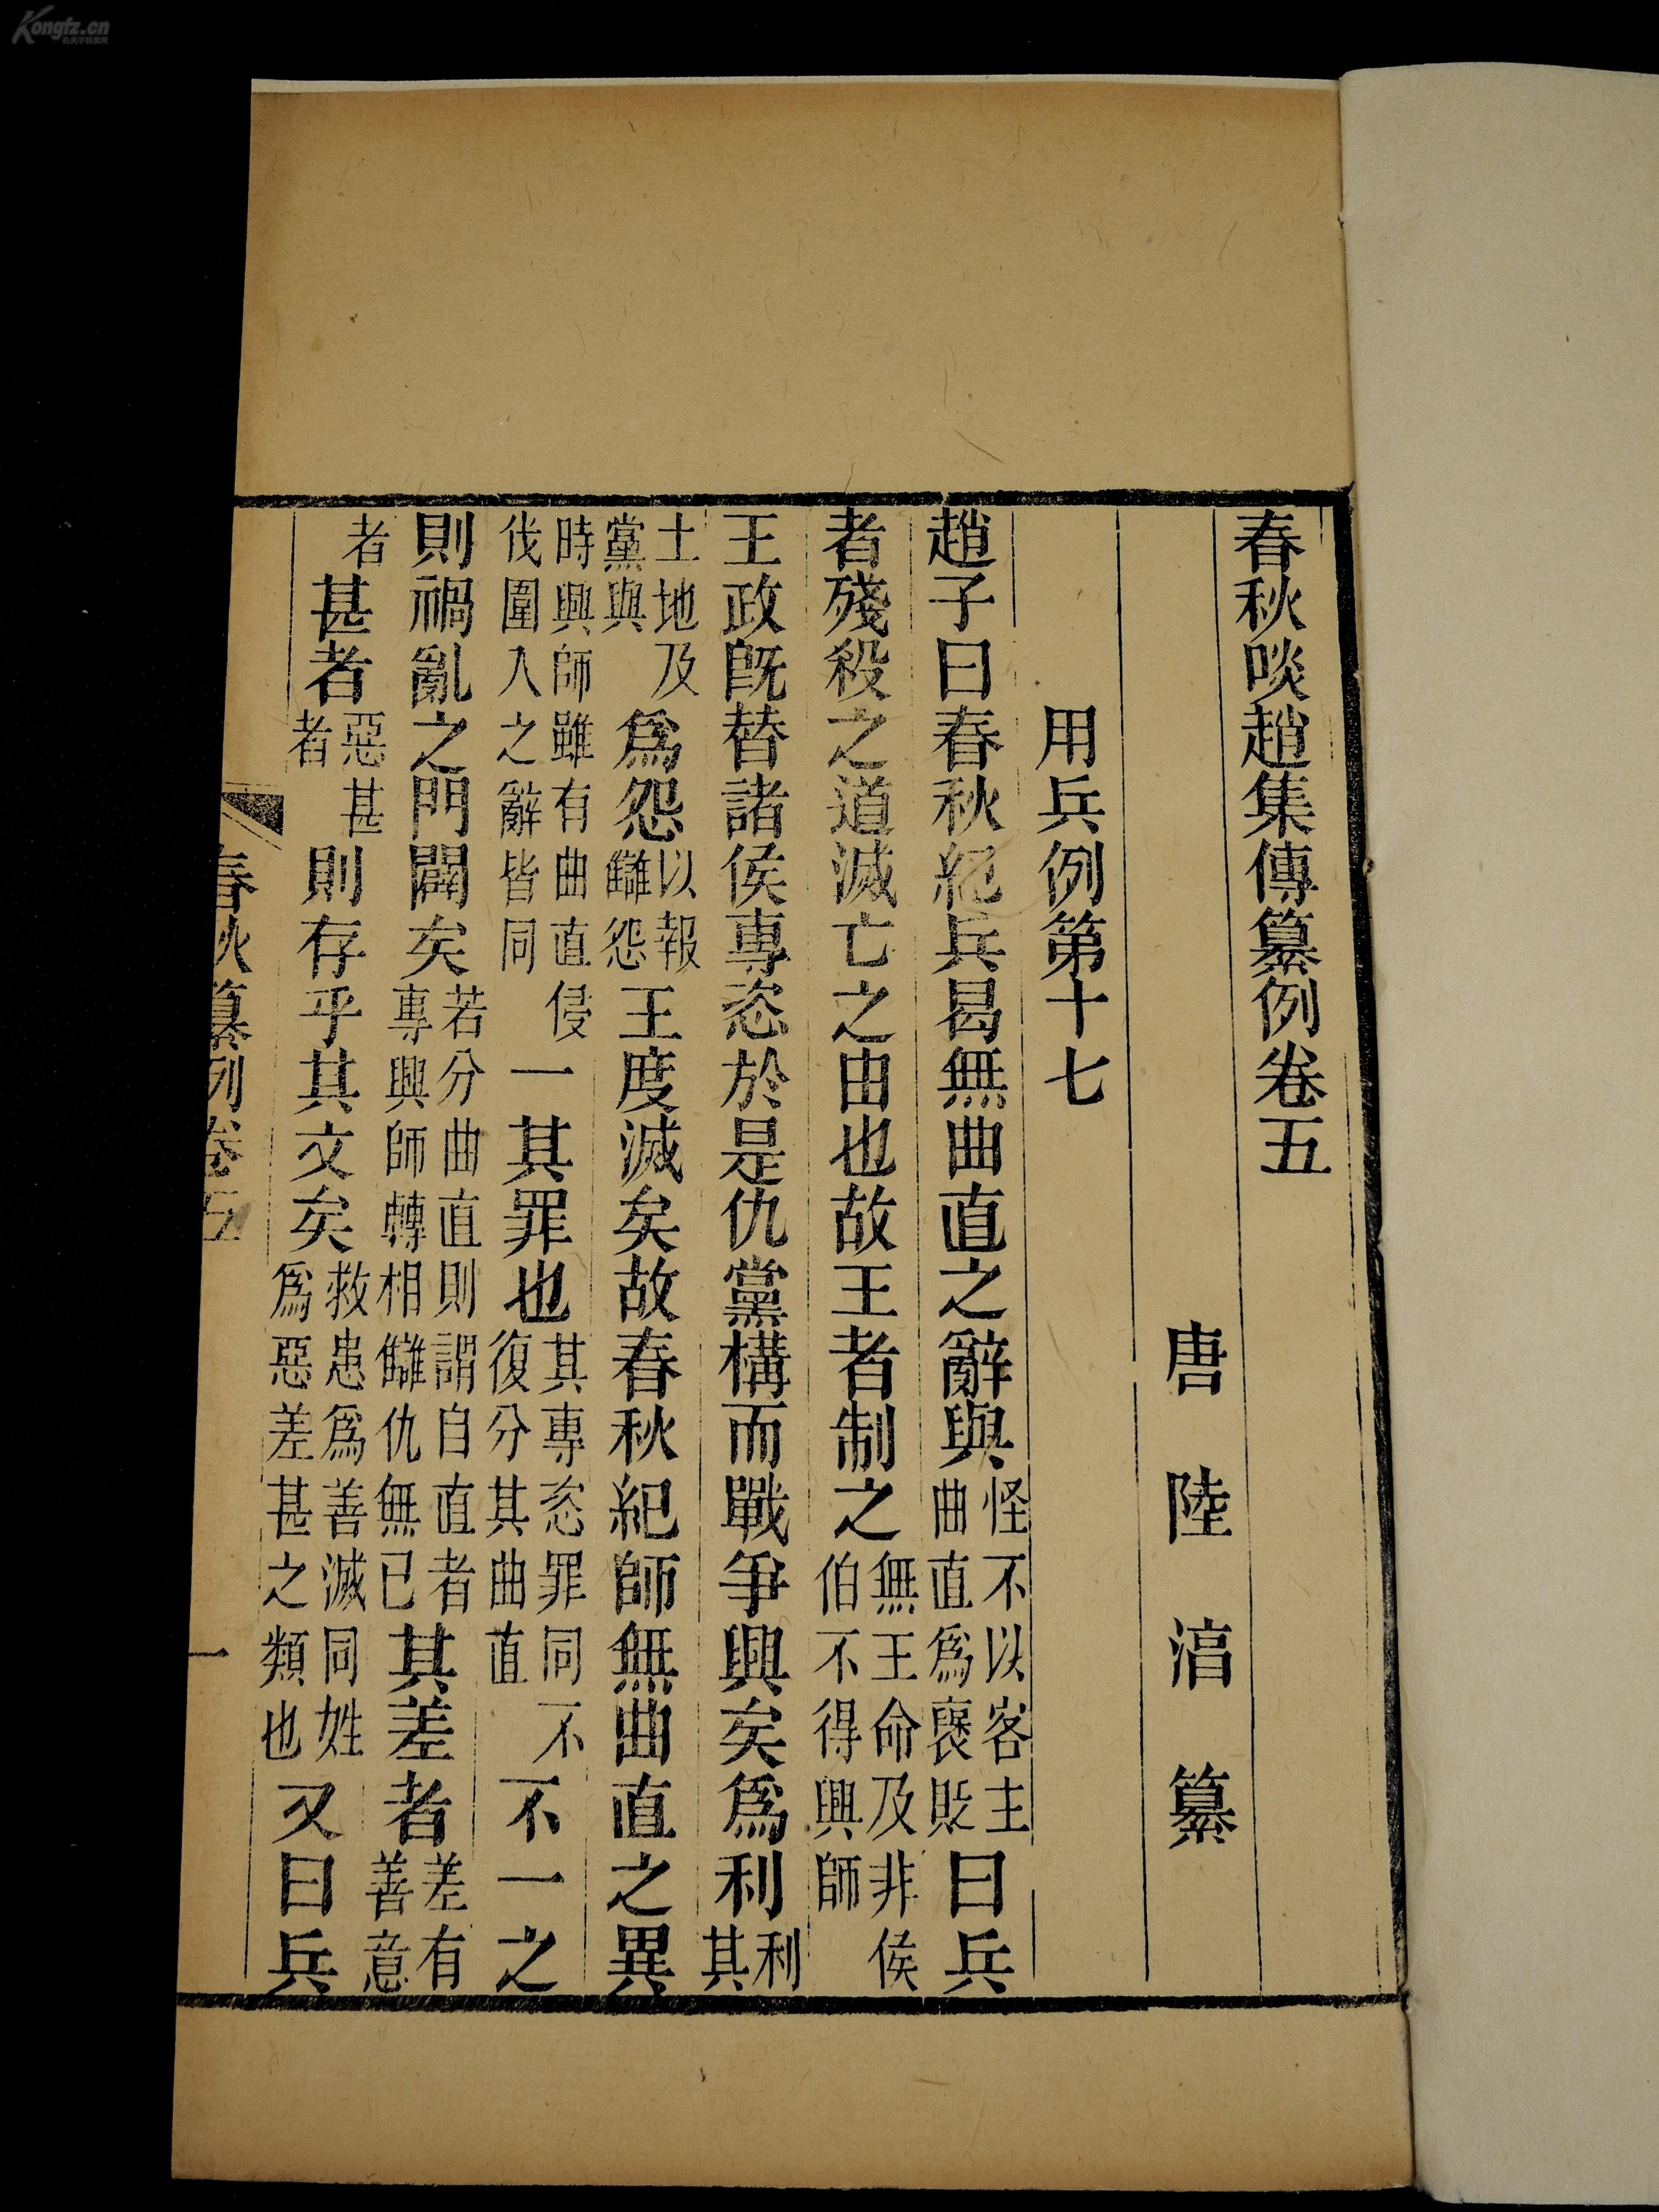 春秋啖趙集傳纂例卷五
唐陸淳纂
用兵例第十七
趙子曰春秋紀兵曷無曲直之辭與怪不以客主曲直爲褒貶曰兵
者殘殺之道滅亡之由也故王者制之無王命及非侯伯不得興師
王政既替諸侯專恣於是仇黨構而戰爭興矣爲利利其
土地及黨與爲怨以報讎怨王度滅矣故春秋紀師無曲直之異
時興師雖有曲直侵伐圍入之辭皆同一其罪也其專恣罪同不復分其曲直不一之
則禍亂之門闢矣若分曲直則謂自直者專興師轉相讎仇無已其差者差有善意
者甚者惡甚者則存乎其文矣救患爲善滅同姓爲惡差甚之類也又曰兵
春秋纂例卷五
一
Kongfz.cn